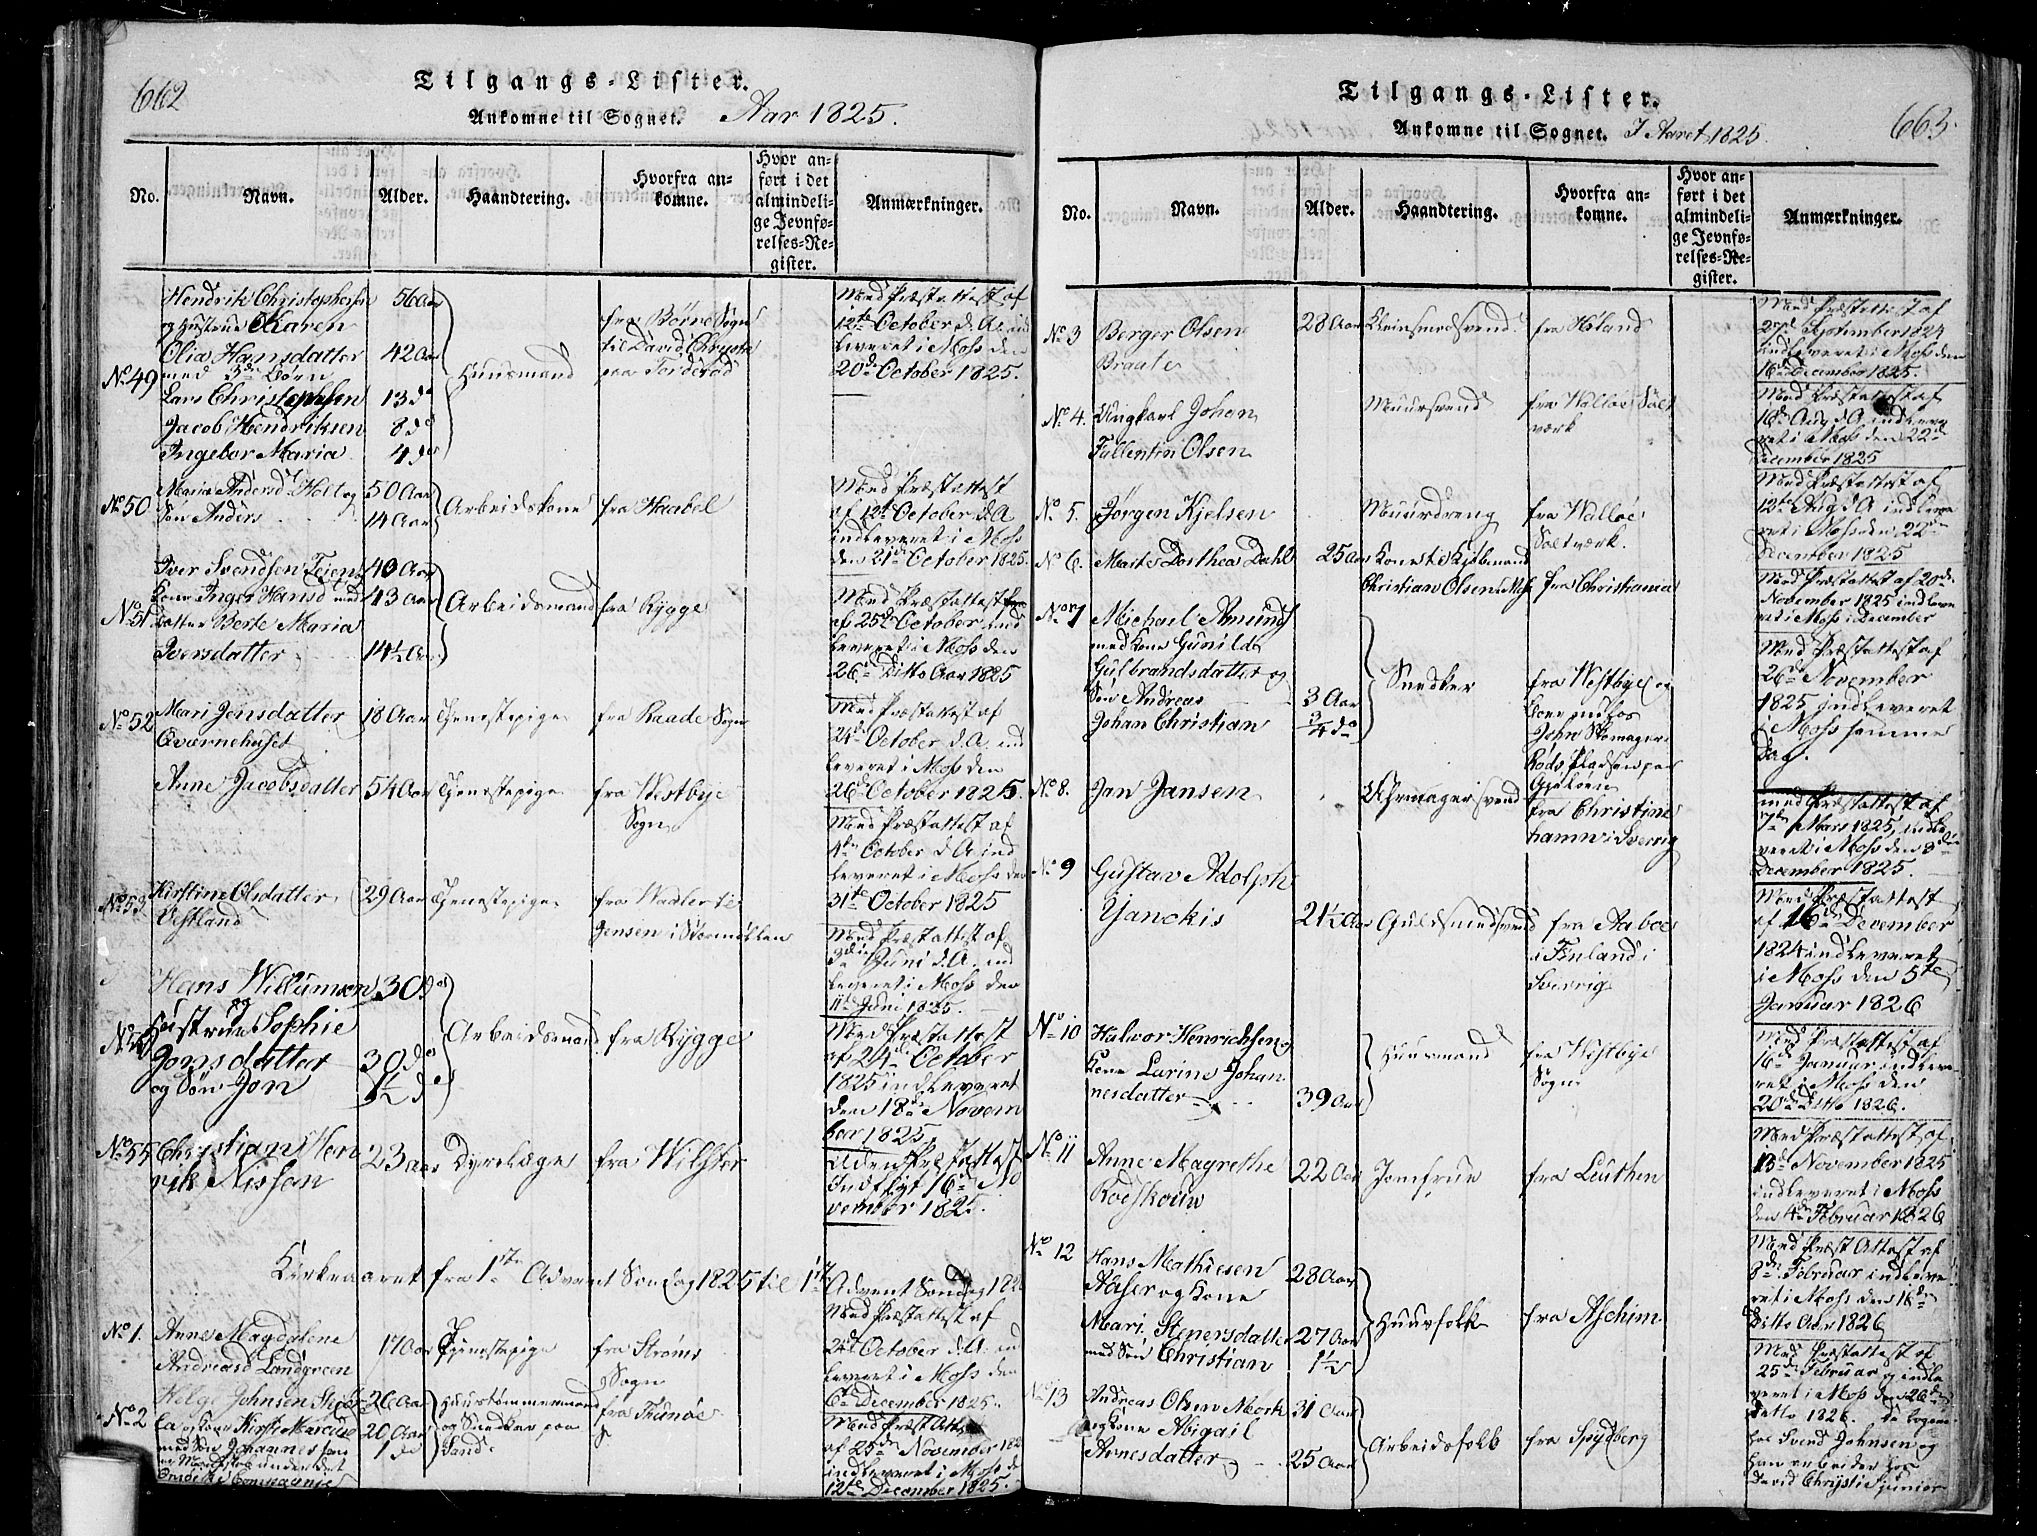 662
Tilgangs-Lister.
Ankomne til Sognet. Aar 1825.
No.
Navn.
Alder.
Haandtering.
Hvorfra an-
komne.
Hvor an-
ført i det
almindeli-
ge Jevnfø-
relses-Re-
gister.
Anmærkninger.
No 49
Hendrik Christophersen 56 Aar
og Hustrue Karen
Olia Hansdatter 42 Aar
med 3de Børn
Lars Christophsen 13 do
Jacob Hendriksen 8 do
Ingebor Maria 4 do
Huusmand
fra Børne Sogn
til David Chrystie
paa Torderød
Med Præstattest af
12te October d. A. ind
leveret i Moss den
20de October 1825.
No 50
Maria Andersd Holt og 50 Aar
Søn Anders 14 Aar
Arbeidskone
fra Haabel
Med Præstattest
af 12te October d. A.
indleveret i Moss
den 21de October 1825.
No 51
Iver Svendsen Teien 40 Aar
Kone Inger Hansd med 43 Aar
datter Berte Maria
Iversdatter 14½ Aar
Arbeidsmand
fra Rygge
Med Præstattest
af 25de October ind
leveret i Moss den
26de Ditto Aar 1825
No 52
Mari Jensdatter 18 Aar
Qværnehuset
Tjenestepige
fra Raade Sogn
Med Præstattest af
24de October d. A. ind
leveret i Moss den
26de October 1825.
Anne Jacobsdatter 54 Aar
Tjenestepige
fra Westbye
Sogn
Med Præstattest af
4de October d. A. ind
leveret i Moss den
31te October 1825
No 53
Kirstine Olsdatter 29 Aar
Vestland
Tjenestepige
fra Wadler til
Jensen i Størmøllen
Med Præstattest af
3die Juni d. A. ind
leveret i Moss den
11te Juni 1825.
Hans Willumsen 30 do
og
Hustrue Sophie
Jonsdatter 30 do
og Søn Jon 1½ do
Arbeidsmand
fra Rygge
Med Præstattest
af 24de October
1825 indleveret
den 18de Novem
ber 1825.
No 55
Christian Hen
rik Nissen
23 Aar
Dyrelæge
fra Wilster
Uden Præstattest
Indflyt 16de No
vember 1825.
Kirkeaaret fra 1ste Advent Søndag 1825 til 1ste
Advent Søndag 1826
No 1.
Anne Magdalene
Andreasd Landgreen
17 Aar
Tjenestepige
fra Strøms
Sogn
Med Præstattest af
October d. A. ind
leveret i Moss den
6te December 1825.
No 2
Helge Johnsen 26 Aar
og Kone Kirsti 20 Aar
med Søn Johannes 1 do
under det
Compagnie
Huustømmermand
og Snedker paa
Sand
fra Trunøe
Med Præst Attest
af 25de November 1825
indleveret i Moss d
12te December 1825.
Tilgangs-Lister.
663.
Ankomne til Sognet. I Aaret 1825.
No.
Navn.
Alder.
Haandtering.
Hvorfra an-
komne.
Hvor an-
ført i det
almindeli-
ge Jevnfø-
relses-Re-
gister.
Anmærkninger.
No 3
Berger Olsen
Braate
28 Aar
Kleinsmedsvend
fra Høland
Med Præstattest af
27de September 1824
indleveret i Moss den
16de December 1825.
No 4.
Ungkarl Johan
Fallentin Olsen
Muursvend
fra Walløe Salt
værk
Med Præstattest af
16de Aug d. A. indleve
ret i Moss den 22de
December 1825
No 5.
Jørgen Kjelsen
Muurdreng
fra Walløe
Saltværk.
Med Præstattest af
12te Aug d A indleve
ret i Moss den 22de
December 1825
No 6.
Marte Dorthea Dahl
25 Aar
Kone til Kjøbmand
Christian Olsen i Moss
fra Christiania
Med Præstattest af 20de
November 1825 indleve
ret i Moss i December
No 7
Michael Amunds
med Kone Gunild
Gulbrandsdatter og
Søn Andreas 3 Aar
Johan Christian ¾ do
Snedker
fra Westbye og
boer ind hos
John Skomager
Røds Pladsen paa
Gjeløen
Med Præstattest af
26de November
1825 indleveret
i Moss samme
Dag.
No 8.
Jan Jansen
Uhrmagersvend
fra Christine
hamn i Sverrig
Med Præstattest af
7de Mars 1825, indle
veret i Moss den 3die
December 1825.
No 9
Gustav Adolph
Yanckis
21½ Aar
Guldsmedsvend
fra Aaboe
i Finland i
Sverrig
Med Præstattest
af 16de December
1824 indleveret
i Moss den 5te
Januar 1826
No 10
Halvor Henrichsen og
Kone Larine Johan
nesdatter 39 Aar
Huusmand
fra Westbye
Sogn
Med Præstattest af
16de Januar indleve
ret i Moss den
20de Ditto 1826.
No 11
Anne Magrethe
Rodskouw
22 Aar
Jomfrue
fra Leuthen
Med Præstattest af
13de November 1825
indleveret i Moss
den 4de Februar 1826
No 12
Hans Mathiesen 28 Aar
Aaser og Kone
Mari Stenersdatter 27 Aar
med Søn Christian 1½
Huusfolk
fra Aschim
Med Præst Attest af
8de Februar indleve
ret i Moss den 18de
Ditto Aar 1826
No 13
Andreas Olsen Mork 31 Aar
og Kone Abigail
Arnesdatter 25 Aar
Arbeidsfolk
fra Spydberg
Med Præstattest af
25de Februar og indle
veret i Moss den 26de
Ditto 1826. De logere
hos Svend Johnsen og
han arbeider hos
David Chrystie junior